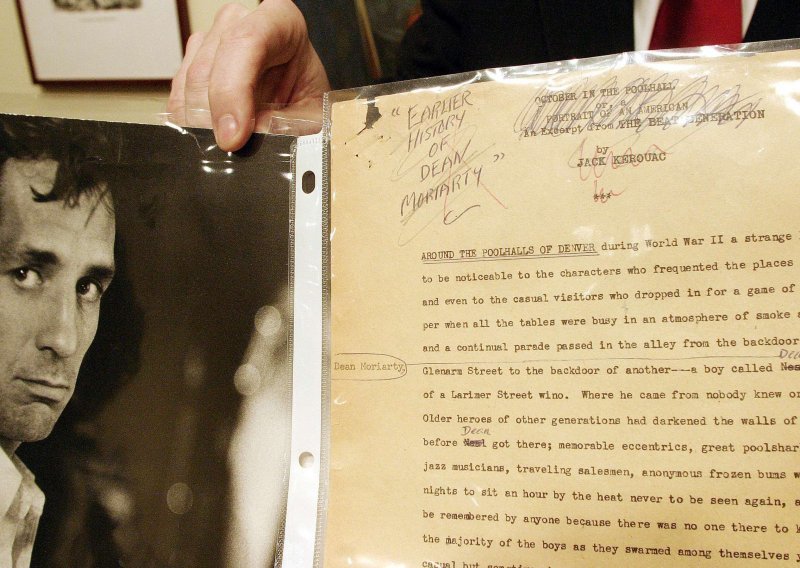 " EARLIER
HISTORY
OF
DEAN
MORIARTY "
OCTOBER IN THE POOLHALL
or, a
PORTRAIT OF AN AMERICAN
An Excerpt from THE BEAT GENERATION
by
JACK KEROUAC
***
AROUND THE POOLHALLS OF DENVER during World War II a strange
to be noticeable to the characters who frequented the places
and even to the casual visitors who dropped in for a game of
per when all the tables were busy in an atmosphere of smoke
and a continual parade passed in the alley from the backdoor
Dean Moriarty, Glenarm Street to the backdoor of another---a boy called
of a Larimer Street wino. Where he came from nobody knew or
Older heroes of other generations had darkened the walls of
Dean
before Neal got there; memorable eccentrics, great poolshar
jazz musicians, traveling salesmen, anonymous frozen bums w
nights to sit an hour by the heat never to be seen again, a
be remembered by anyone because there was no one there to
the majority of the boys as they swarmed among themselves y